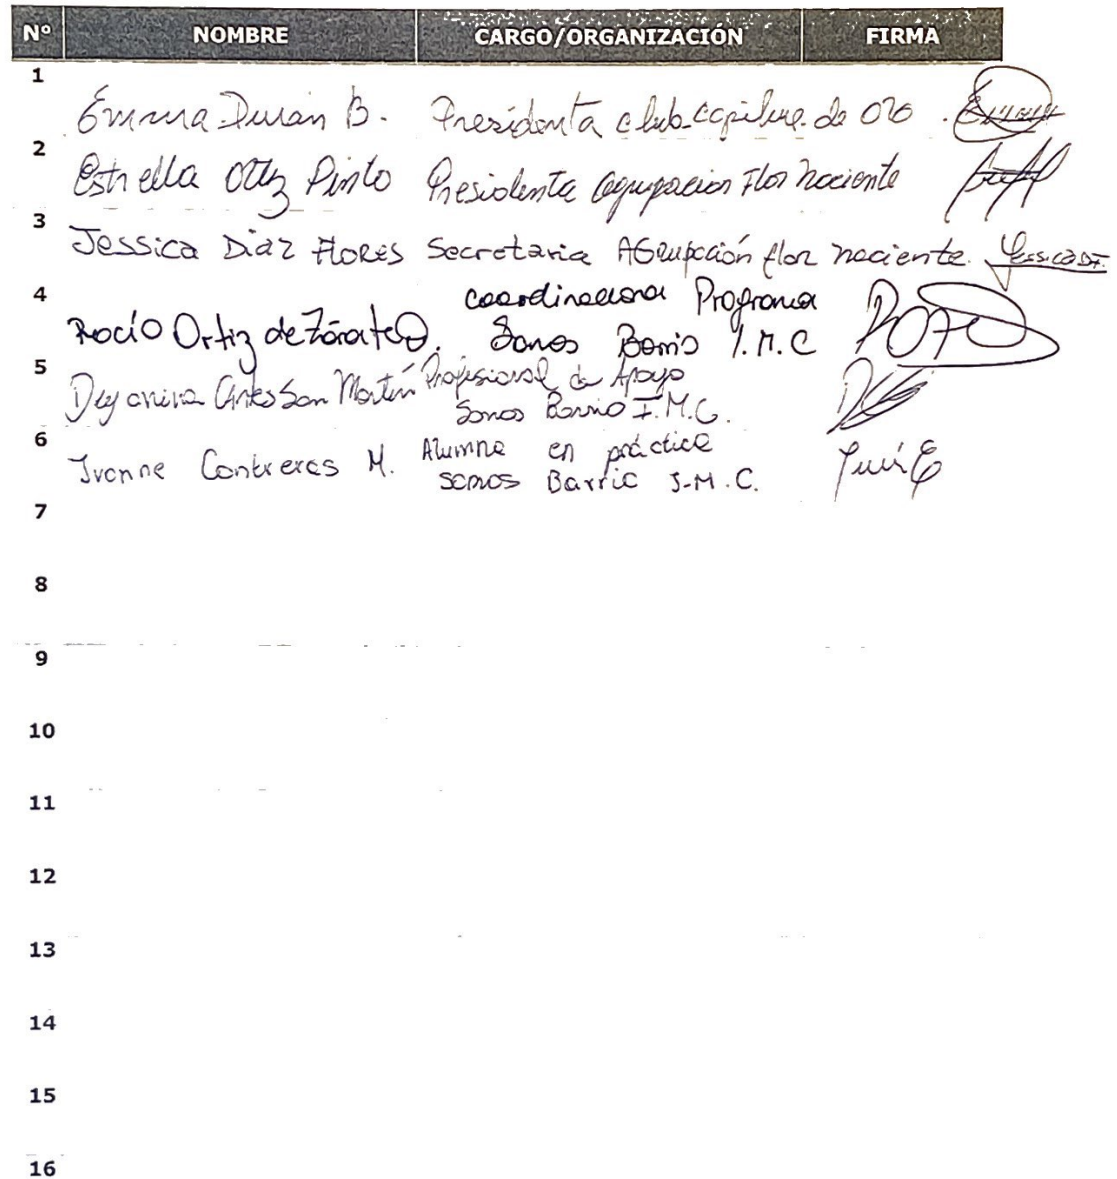 Nº NOMBRE CARGO/ORGANIZACIÓN FIRMA
1
Emma Durán B. Presidenta club de oro
2
Estrella Ortiz Pinto Presidenta agrupacion Flor naciente
3
Jessica Diaz FLORES Secretaria AGrupación flor naciente. Jessica DF.
4
coordinadora Programa
Rocío Ortiz de Zárate O. Somos Barrio I.M.C
5
San Martín Profesional de Apoyo
Somos Barrio I.M.C.
6
Ivonne Contreras M. Alumna en práctica
somos Barrio I.M.C.
7
8
9
10
11
12
13
14
15
16